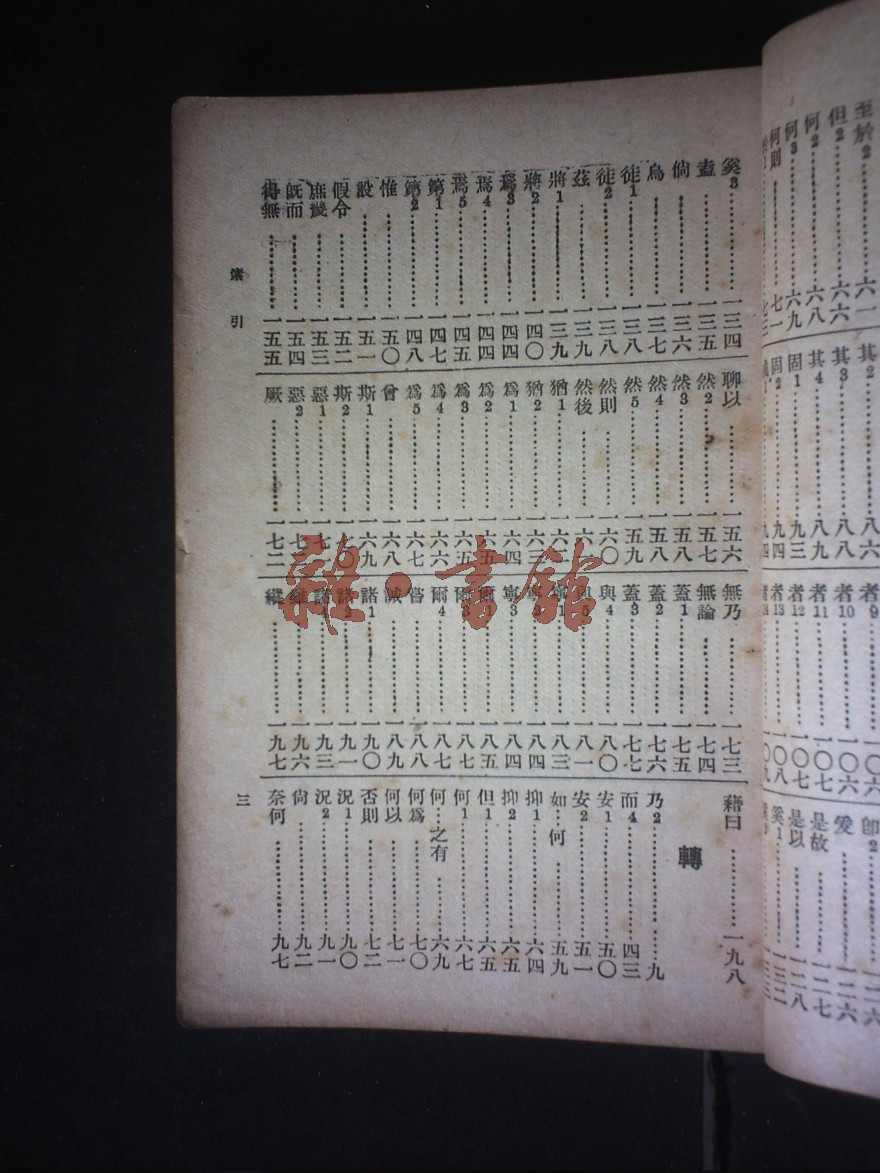 至於2……六一
但2……六六
何2……六八
何3……六九
何則……七一
其2
其3……八六
其4……八九
固1……九三
固2……九四
者9
者10……一〇六
者11……一〇七
者12……一〇七
者13……一〇八
卽2……一一六
爰……一二六
是故……一二七
是以……一二八
奚1……一三二
奚3……一三四
盍……一三五
倘……一三六
烏……一三七
徒1……一三八
徒2……一三八
茲……一三九
將1……一三九
將2……一四〇
焉3……一四四
焉4……一四四
焉5……一四五
第1……一四七
第2……一四八
惟……一五〇
設……一五一
假令……一五二
庶幾……一五三
旣而……一五四
得無……一五五
聊以……一五六
然2……一五七
然3……一五八
然4……一五八
然5……一五九
然則……一六〇
然後……一六一
猶1……一六二
猶2……一六三
爲1……一六四
爲2……一六五
爲3……一六五
爲4……一六六
爲5……一六七
曾……一六八
斯1……一六九
斯2……一七〇
惡1……一七一
惡2
厥……一七二
無乃……一七三
無論……一七四
蓋1……一七五
蓋2……一七六
蓋3……一七七
與4……一八〇
與5……一八一
寧1……一八三
寧2……一八四
寧3……一八四
爾……一八五
爾3……一八七
爾4……一八七
詧……一八八
誠……一八九
諸1……一九〇
諸2……一九一
諸4……一九三
一九六
縱……一九七
藉曰……一九八
轉
乃2……九
而4……四三
安1……五〇
安2……五一
如…何……五九
抑1……六四
抑2……六五
但1……六五
何1……六七
何…之有……六九
何爲……七〇
何以……七一
否則……七二
況1……九〇
況2……九一
尙……九二
奈何……九七
索引
三
雜·書館